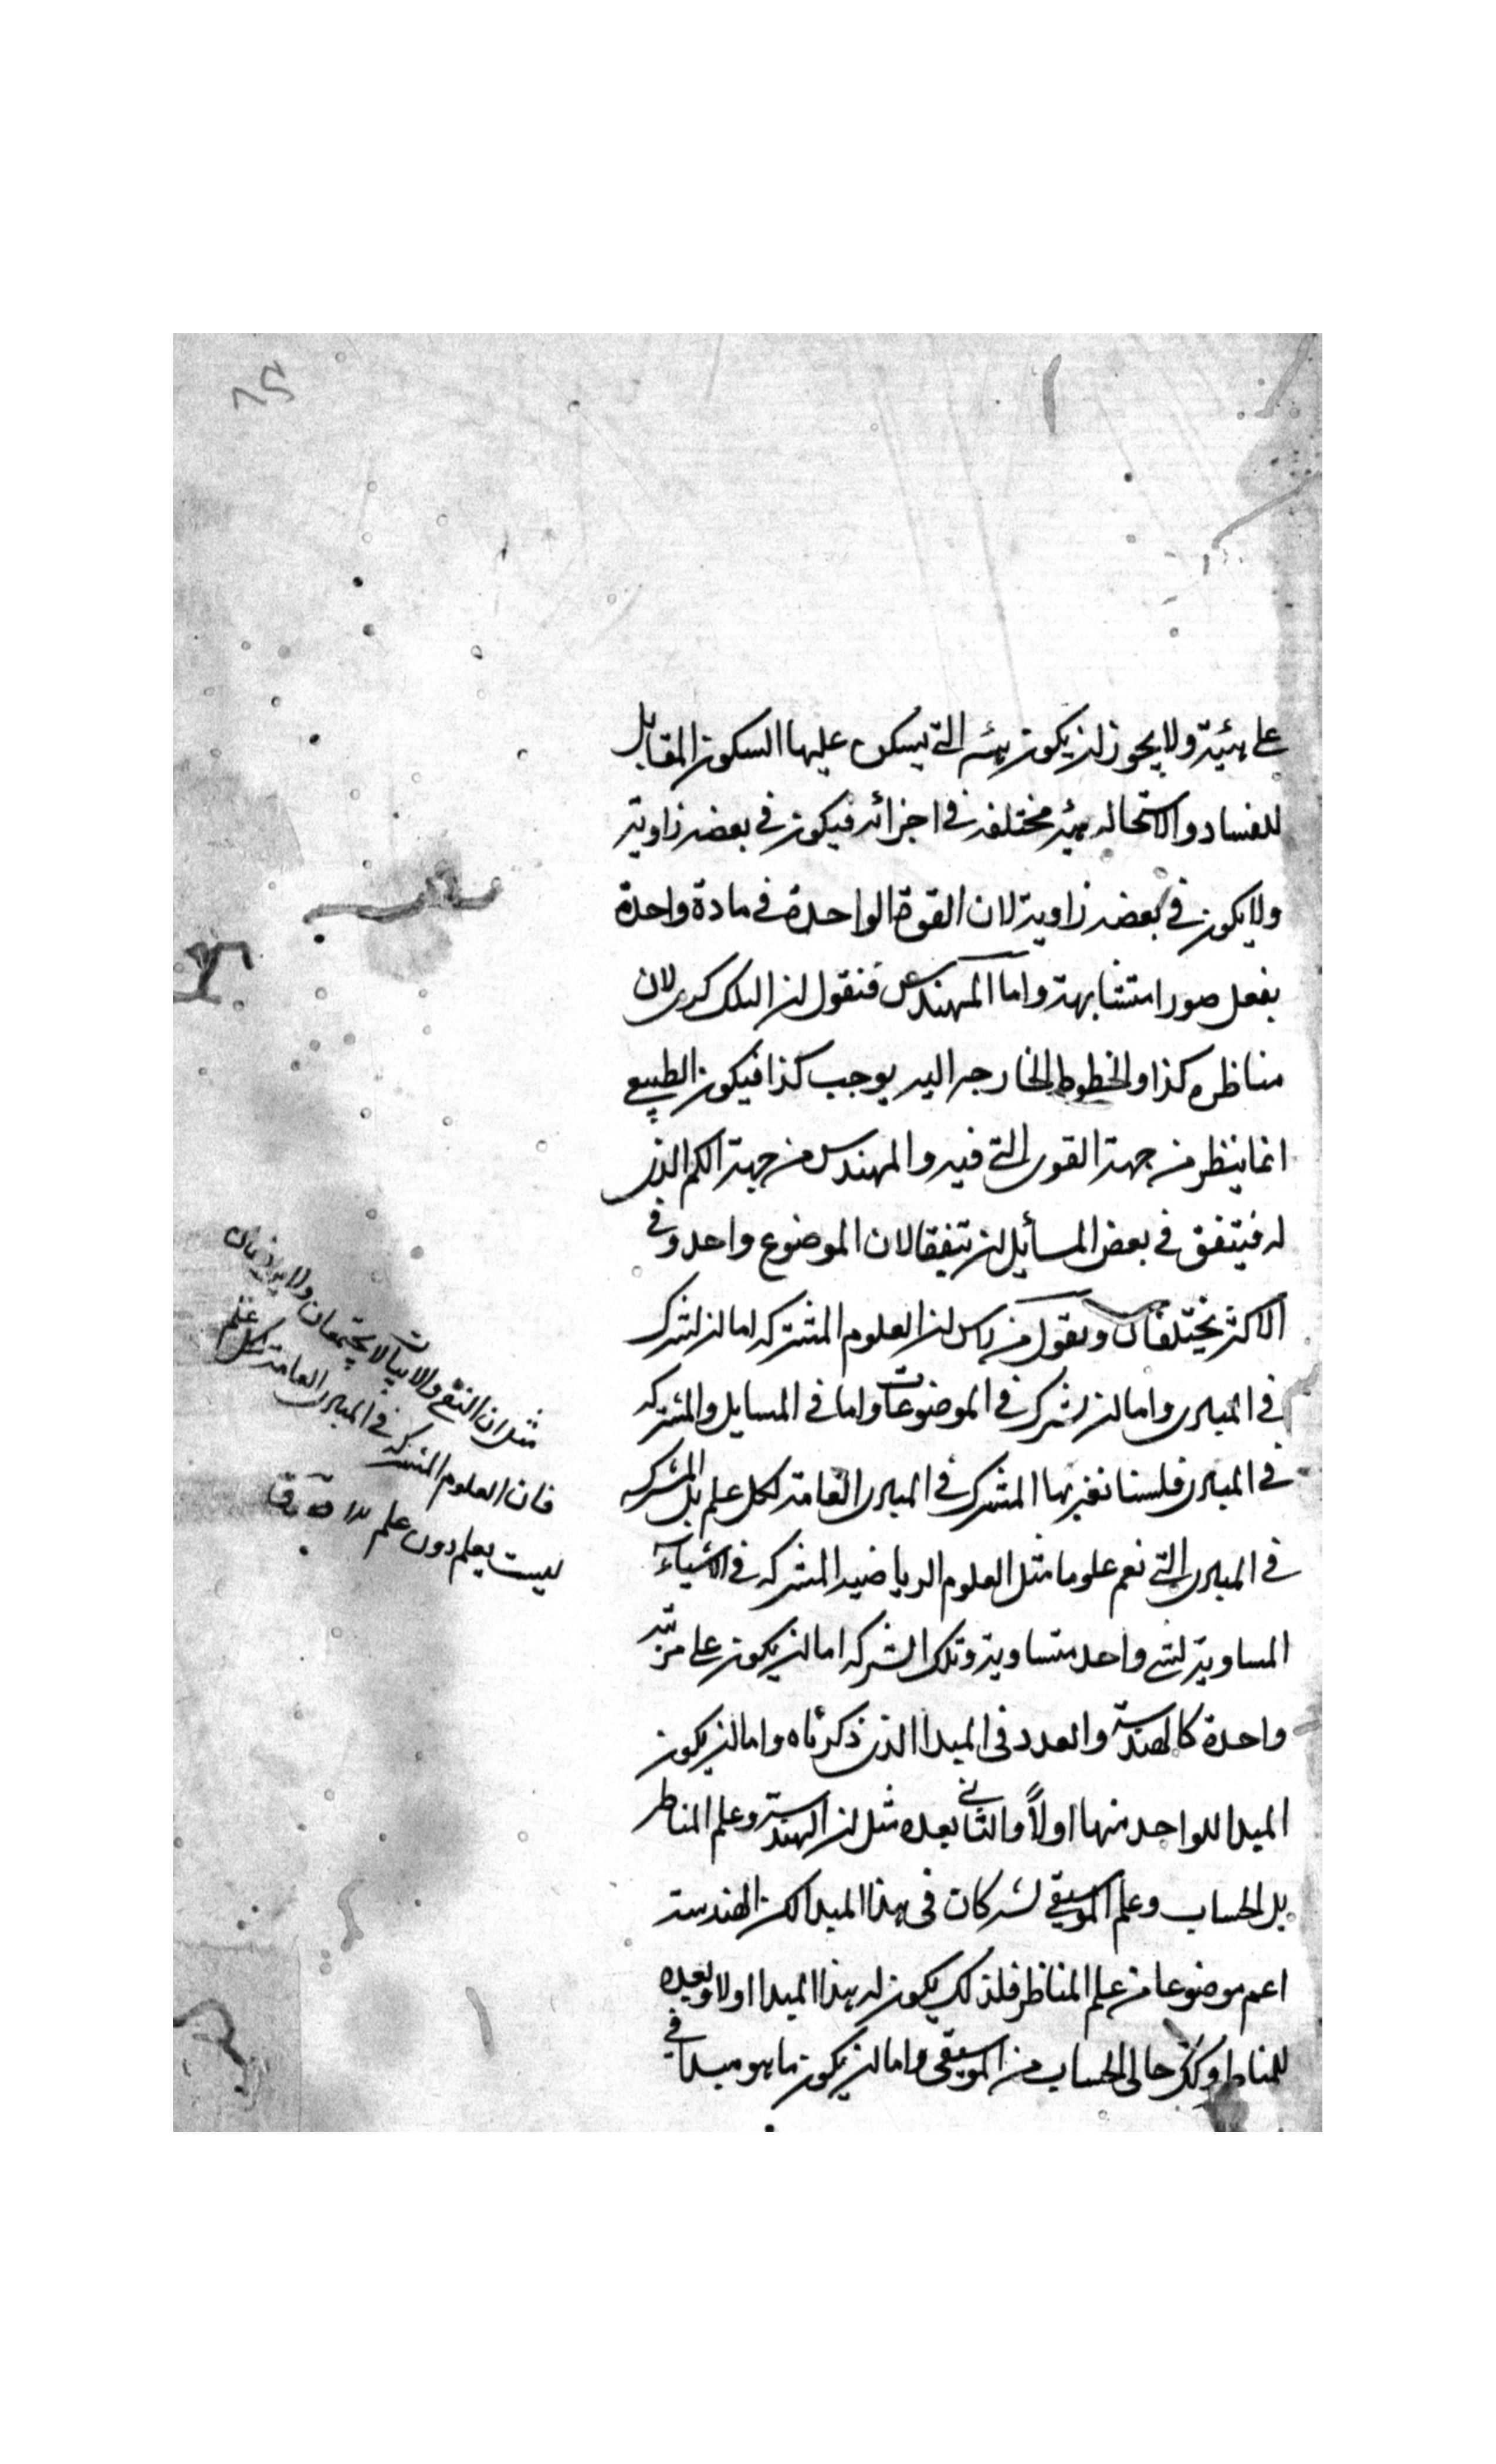 على هيئية ولا يجوز ان يكون هيئه التى يسكن عليها السكون المقابل
للفساد والاستحاله هيئه مختلفه فى اجزائه فيكون فى بعضه زاوية
ولا يكون فى بعضه زاوية لان القوة الواحدة فى مادة واحدة
يفعل صورا متشابهة واما المهندس فنقول ان الفلك كرى لان
مناظره كذا والخطوط الخارجه اليه يوجب كذا فيكون الطبيعى
انما ينظر من جهة القوى التى فيه والمهندس من جهة الكم الذى
له فيتفق فى بعض المسائل ان يتفقا لان الموضوع واحد وفى
الاكثر يختلفان ونقول من راس ان العلوم المشتركه اما ان تشترك
فى المبادى واما ان تشترك فى الموضوعات واما فى المسايل والمشتركه
فى المبادى فلسنا نعنى بها المشترك فى المبادى العامة لكل علم بل المشتركه
فى المبادى التى تعم علوما مثل العلوم الرياضيه المشتركه فى الاشياء
المساوية لشئ واحد متساوية وتلك الشركه اما ان يكون على مرتبة
واحدة كالهندسة والعدد فى المبدا الذى ذكرناه واما ان يكون
المبدا للواحد منها اولاً والثانى بعده مثل ان الهندسة وعلم المناظر
بل الحساب وعلم الموسيقى تشتركان فى هذا المبدا لكن الهندسة
اعم موضوعا من علم المناظر فلذلك يكون له هذا المبدا اولا وبعده
للمناظر وكذلك حال الحساب من الموسيقى واما ان يكون ما هو مبدا فى
مثل ان النفى والاثبات لا يجتمعان ولا يرتفعان
فان العلوم المشتركه فى المبادى العامة لكل علم
ليست بعلم دون علم